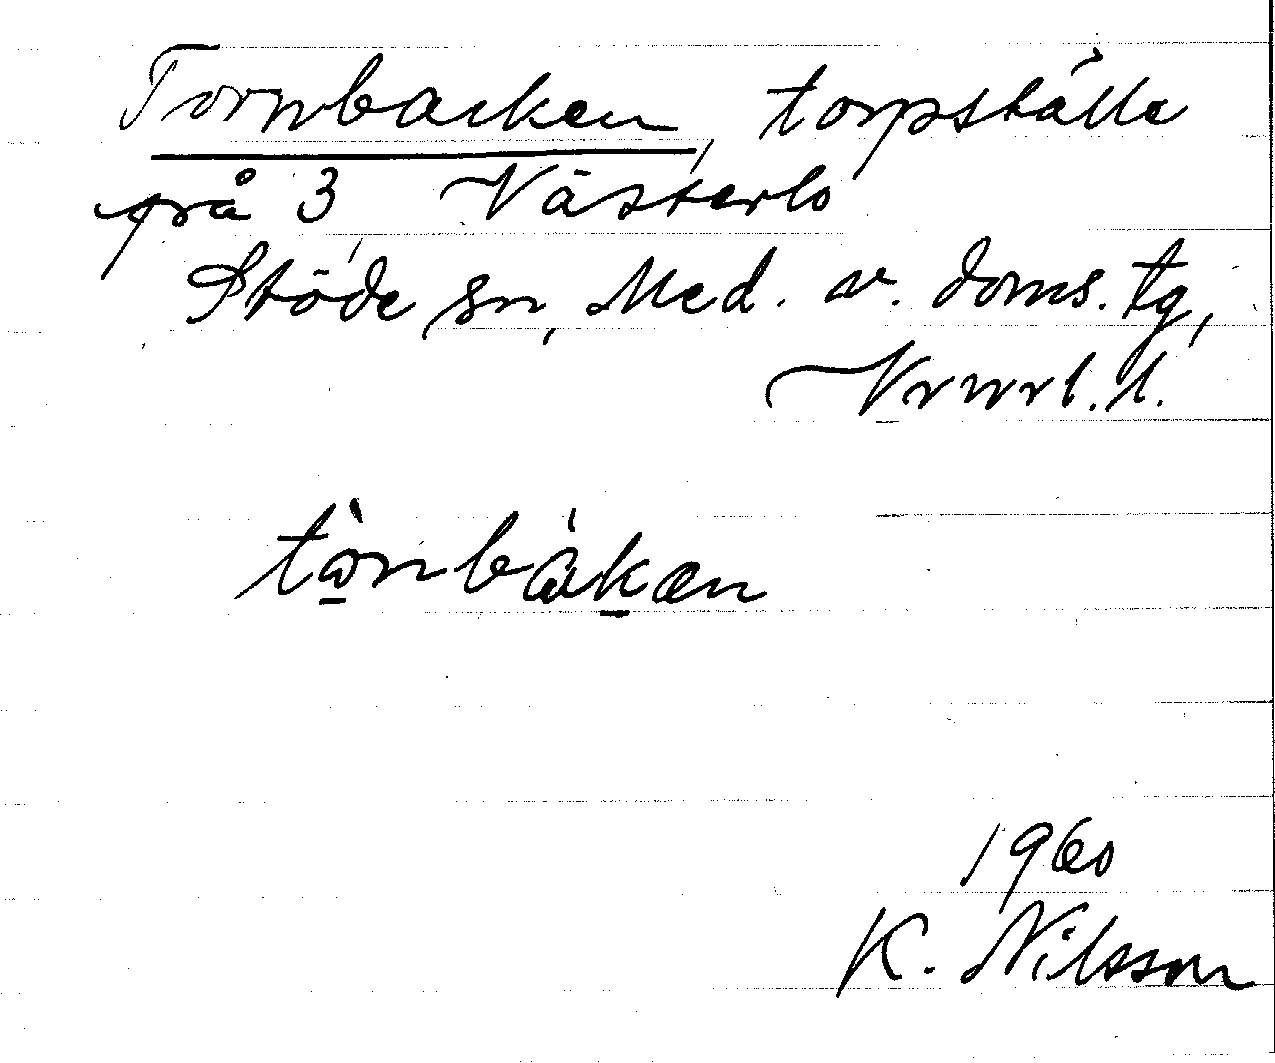 Tornbacken, torpställe
på 3 Västerlo
Stöde sn, Med. v. doms. tg,
Vrnrl. l.
tònbákæn
1960
K. Nilsson